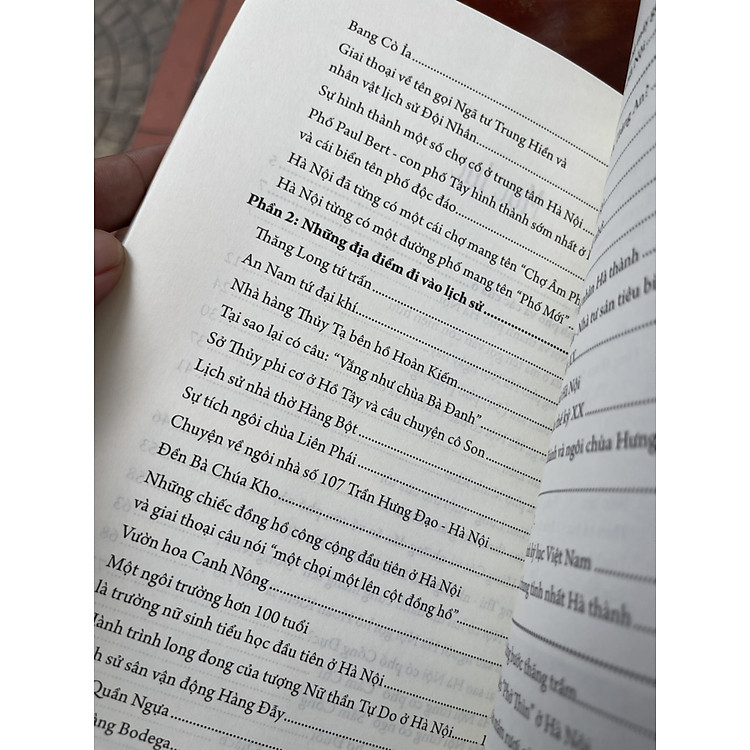 Bang Cò Ỉa
Giai thoại về tên gọi Ngã tư Trung Hiền và
nhân vật lịch sử Đội Nhân
Sự hình thành một số chợ cổ ở trung tâm Hà Nội
Phố Paul Bert - con phố Tây hình thành sớm nhất ở
và cái biển tên phố độc đáo
Hà Nội đã từng có một cái chợ mang tên “Chợ Âm Ph
Hà Nội từng có một đường phố mang tên “Phố Mới”
Phần 2: Những địa điểm đi vào lịch sử
Thăng Long tứ trấn
An Nam tứ đại khí
Nhà hàng Thủy Tạ bên hồ Hoàn Kiếm
Tại sao lại có câu: “Vắng như chùa Bà Đanh”
Sở Thủy phi cơ ở Hồ Tây và câu chuyện cô Son
Lịch sử nhà thờ Hàng Bột
Sự tích ngôi chùa Liên Phái
Chuyện về ngôi nhà số 107 Trần Hưng Đạo - Hà Nội
Đền Bà Chúa Kho
Những chiếc đồng hồ công cộng đầu tiên ở Hà Nội
và giai thoại câu nói “một chọi một lên cột đồng hồ”
Vườn hoa Canh Nông
Một ngôi trường hơn 100 tuổi
là trường nữ sinh tiểu học đầu tiên ở Hà Nội
Hành trình long đong của tượng Nữ thần Tự Do ở Hà Nội 1
h sử sân vận động Hàng Đẫy
Quần Ngựa
àng Bodega
Hà thành
Nhà tư sản tiêu bi
à Nội
thế kỷ XX
và ngôi chùa Hưng
kỷ lục Việt Nam
tình nhất Hà thành
bước thăng trầm
“Phở Thìn” ở Hà N